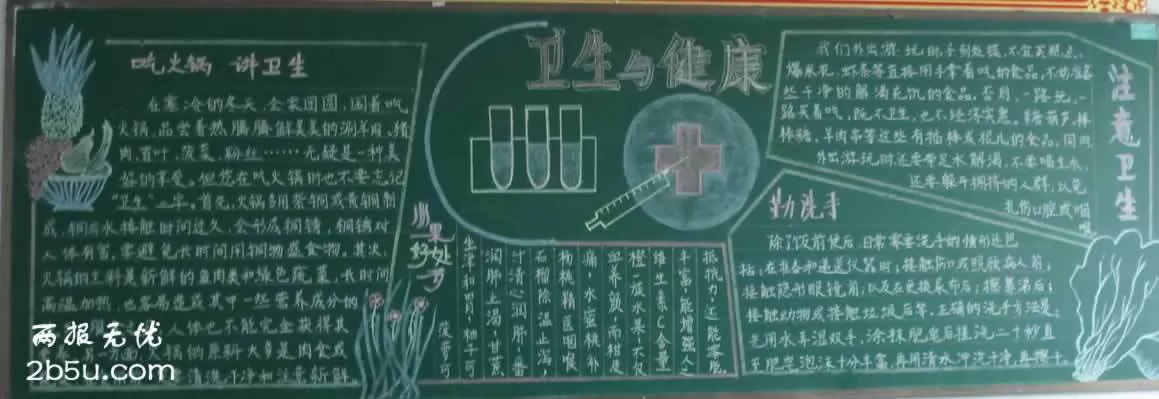 卫生与健康
吃火锅 讲卫生
在寒冷的冬天,全家团圆,围着吃
火锅,品尝着热腾腾鲜美美的涮羊肉、猪
肉、百叶、菠菜、粉丝……无疑是一种美
好的享受。但您在吃火锅时也不要忘记
“卫生”二字。首先,火锅多用紫铜或黄铜制
成,铜与水接触时间过久,会形成铜锈,铜锈对
人体有害,需避免长时间用铜物盛食物。其次,
火锅的主料是新鲜的鱼肉类和绿色蔬菜,长时间
高温加热,也容易造成其中一些营养成分的
人体也不能完全获得其
另一方面,火锅的原料大多是肉食或
清洗干净和注意新鲜
水果好处多
抵抗力,还能零脂
丰富,能增强人
维生素C含量
橙一族水果,不仅
血养颜,而柑皮
痛,水蜜桃补
杨桃精医咽喉
石榴除温止泻,
汁清心润肝,香
润肺止渴,甘蔗
生津和胃,柚子可
菠萝可
我们外出游玩时,手到处摸,不宜买糕点、
爆米花、虾条等直接用手拿着吃的食品,
些干净的解渴充饥的食品,否则,一路玩,一
路买着吃,既不卫生,也不经济实惠。糖葫芦、棒
棒糖、羊肉串等这些有插棒或棍儿的食品,同时,
外出游玩时还要带足水解渴,不要喝生水,
还要躲开拥挤的人群,以免
扎伤口腔或咽
喉
注意卫生
勤洗手
除了饭前便后,日常需要洗手的情形还包
括:在准备和递送仪器时;接触伤口或照顾病人前;
接触隐形眼镜前;以及在更换尿布后;擦鼻涕后;
接触动物或接触垃圾后等。正确的洗手方法是:
先用水弄湿双手,涂抹肥皂后搓洗二十秒直
至肥皂泡沫十分丰富,再用清水冲洗干净,再擦干。
两报无忧
2b5u.com